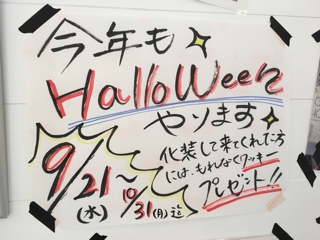 今年も
HalloWeen
やります
9/21〜
(水)
10/31(月)迄
化装して来てくれた方
には、もれなくクッキー
プレゼント!!